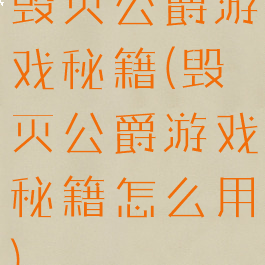 毁灭公爵游
戏秘籍(毁
灭公爵游戏
秘籍怎么用
)